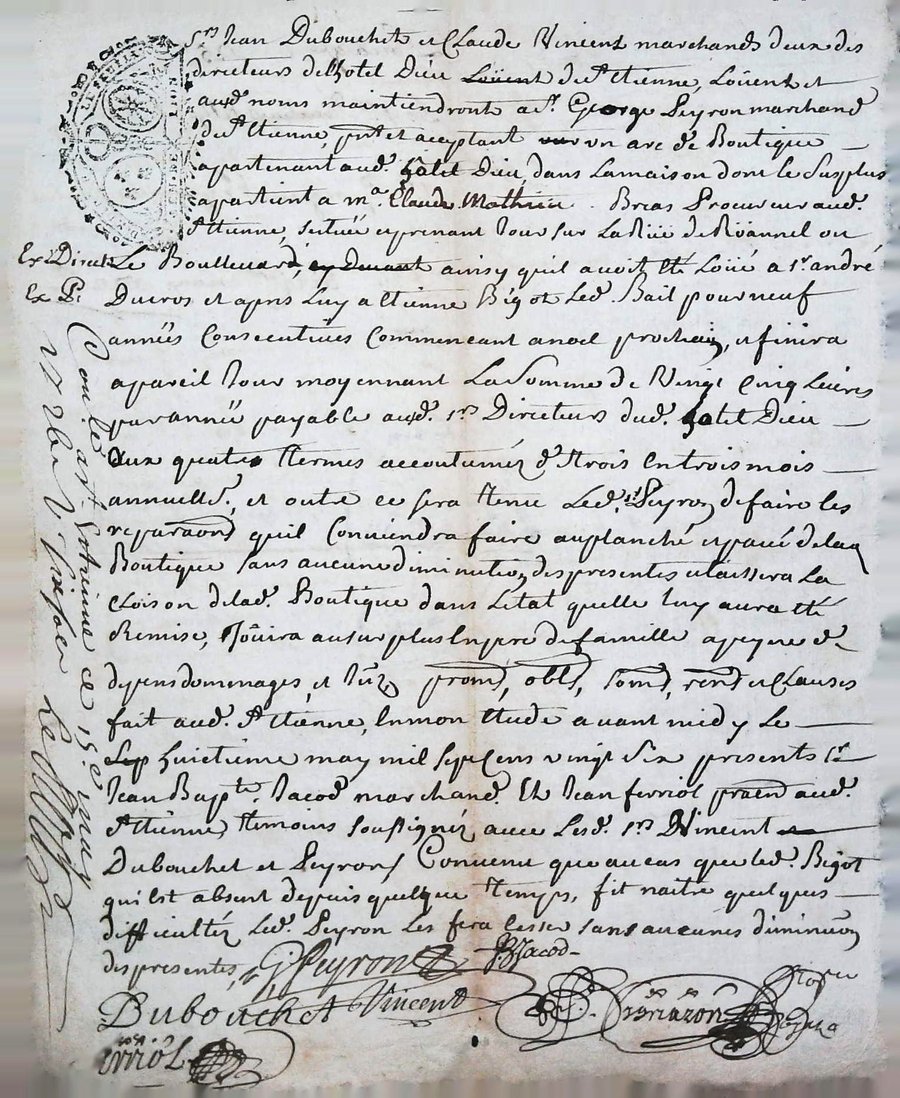 Srs Jean Dubouchet et Claude Vincent marchands deux des
directeurs de lhotel Dieu de St Etienne, Loüent et
aud. noms maintiendront a sr. George Peyron marchand
de St Etienne, pnt et acceptant un arc de Boutique
apartenant aud. hotel Dieu, dans La maison dont le Surplus
apartient a me Claude Mathieu Brias Procureur aud.
St Etienne, scituée et prenant Jour sur La Rüe de Roannel ou
Le Boullevard, ainsy quil avoit été Loüé a sr. andré
Ducros et aprés Luy a Etienne Bigot Led. Bail pour neuf
années Consecutives Commencant a noel prochain, et finira
a pareil Jour moyennant La Somme de Vingt Cinq Livres
par année payable aud. srs Directeurs dud. hotel Dieu
Aux quatre termes accoutumez de trois en trois mois
annuellt. et outre ce sera tenu Led. sr Peyron de faire les
reparaons quil Conviendra faire au planché et pavé de lad.
Boutique sans aucune diminution des presentes et laissera La
Cloison de lad. Boutique dans Letat quelle luy aura été
Remise, Joüira au surplus en pere de famille a peyne de
depens domenages, et Jnt. prom, obl, soum, ren et Clauses
fait aud. St Etienne, en mon etude avant midy Le
huictieme may mil sept cens vingt Six presents sr.
Jean Bapte. Jacod marchand. Et Jean ferriol praen aud.
St Etienne temoins sousignez avec Lesd. srs Vincent
Dubouchet et Peyron Convenu que au cas que led. Bigot
qui est absent depuis quelque temps, fit naitre quelques
difficultéz Led. Peyron les fera Cesser sans aucunes diminuon
des presentes,
G Peyron
JB Jacod
Dubouchet Vincent
ferriol
Ex. Direct
Ex P.
Con.lé a St Etienne ce 15e may